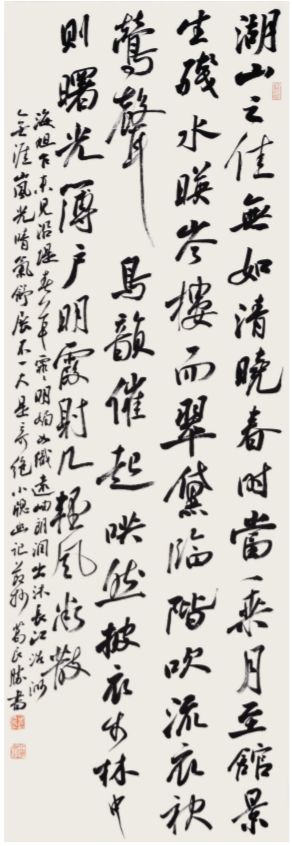 湖山之佳無如清曉春時當乘月至館景
生殘水暎岑樓而翠黛臨階吹流衣袂
鶯聲鳥韻催起哄然披衣步林中
則曙光薄户明霞射几輕風微散
海旭乍來見沿堤春草霏霏明媚如織遠岫朗潤出沐長江浩渺
無涯嵐光晴氣舒展不一大是奇絶小窗幽記